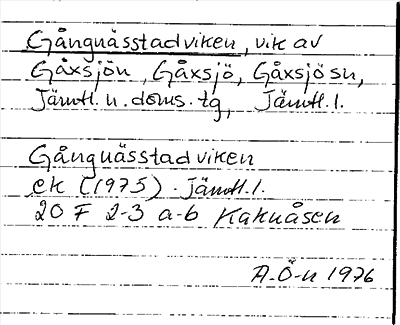 Gångnässtadviken, vik av
Gåxsjön, Gåxsjö, Gåxsjö sn,
Jämtl. n. doms. tg, Jämtl. l.
Gångnässtadviken
ek (1975). Jämtl. l.
20 F 2-3 a-b Kaknåsen
A-Ö-n 1976